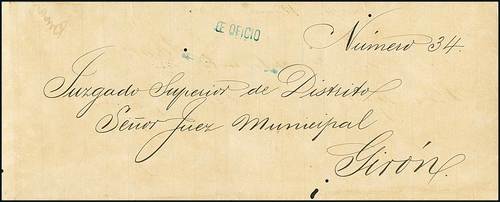 DE OFICIO
Número 34.
Juzgado Superior de Distrito
Señor Juez Municipal
Girón.